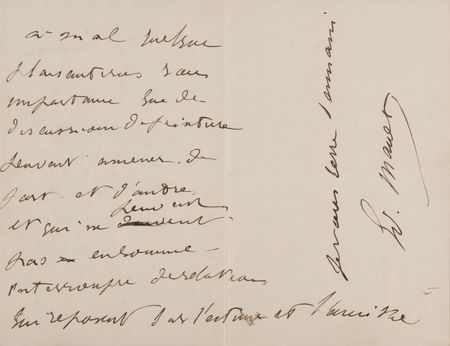 mal quelque
plaisanteries sans
importance que de
discussions de peinture
peuvent amener de
part et d'autre
et qui ne peuvent
pas en somme
interrompre des relations
qui reposent sur l'estime et l'amitié
je vous serre la main
Ed. Manet